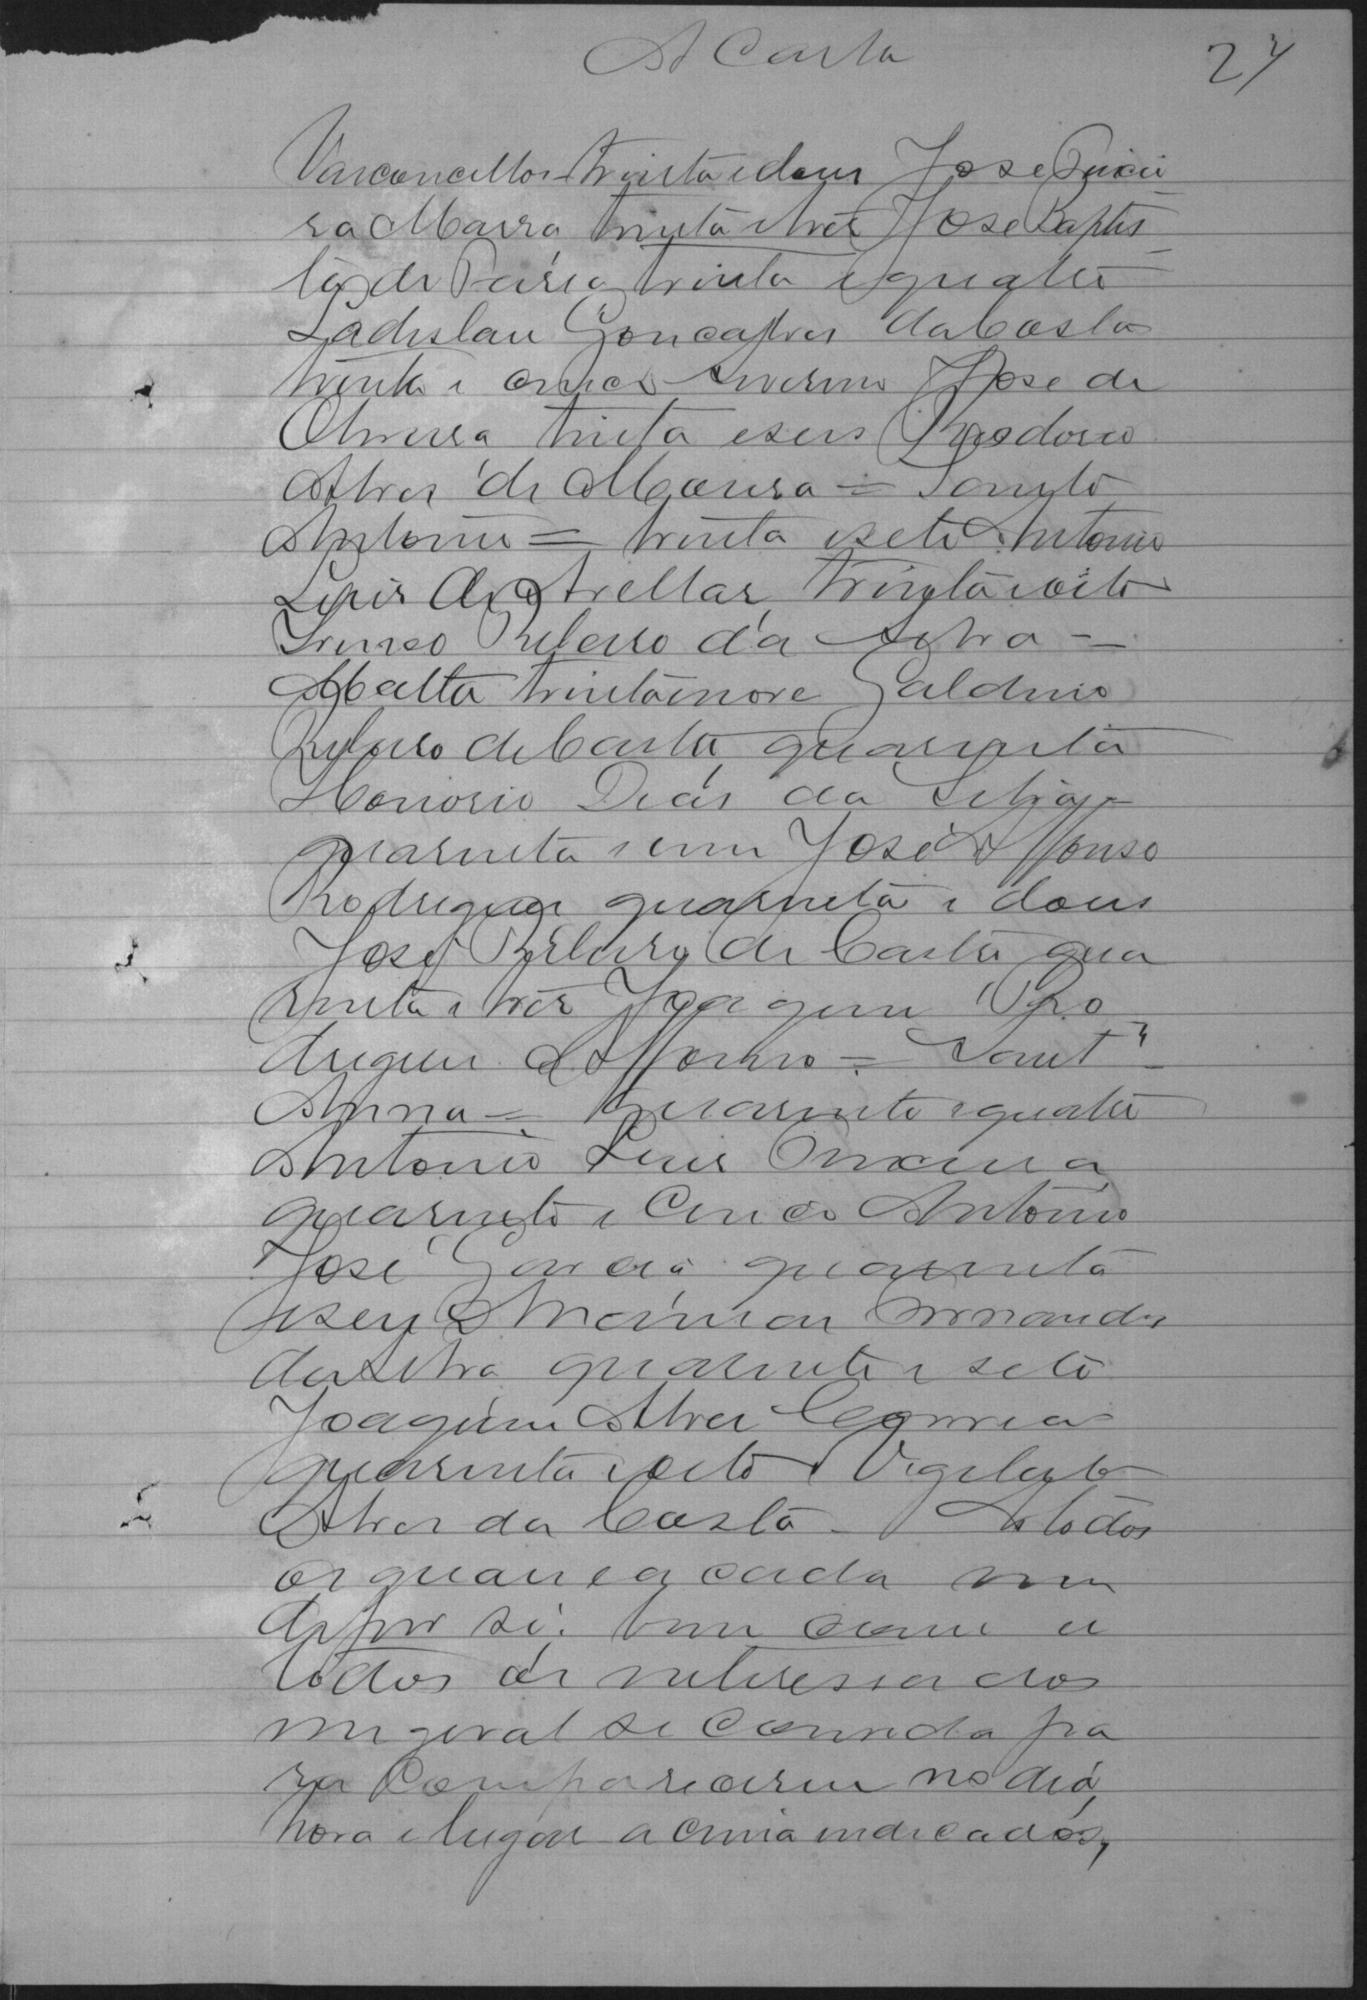 A Costa 24
Vasconcellos trinta e dous José Pereei
ra Marra trinta e tres José Baptis
ta de Faria trinta e quatro
Ladislau Gonçalves da Costa
trinta e cinco Severino José de
Oliveira trinta e seis Theodoro
Alves de Moura = Santo
Antonio = trinta e sete Antonio
Luis de Avellar trinta e oito
Irineo Ribeiro da Silva =
Matta trinta e nove Galdino
Ribeiro de Castro quarenta
Honorio Dias da Silva
quarenta e um José Affonso
Rodrigues quarenta e dous
José Ribeiro de Castro qua
renta e tres Joaquim Ro
drigues Affonso = Sant'
Anna = quarenta e quatro
Antonio Luis
quarenta e cinco Antonio
José Garcia quarenta
e seis Fernandes
da Silva quarenta e sete
Joaquim Alves Correia
quarenta e oito Vigilato
Alves da Costa A todos
os quaes e a cada um
de per si, bem como a
todos os interessados
em geral se convida pa
ra comparecerem no dia,
hora e lugar acima indicados,